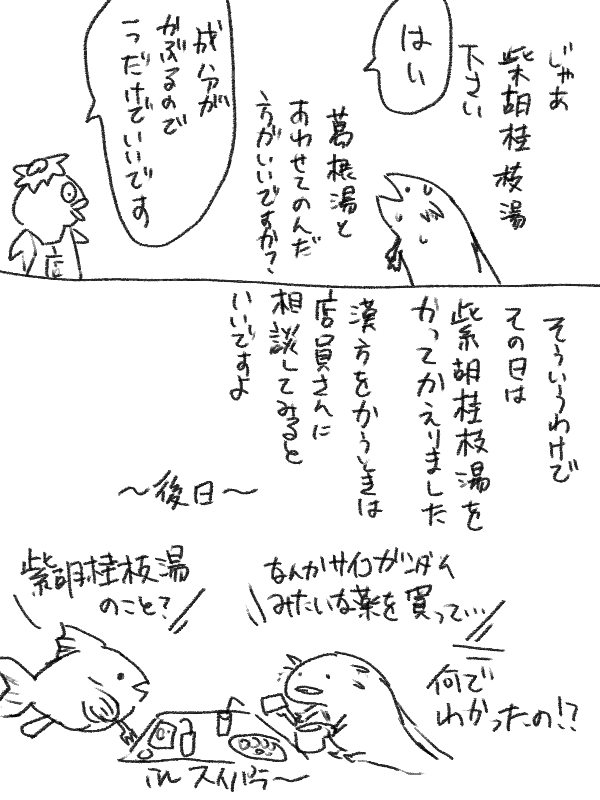 じゃあ
柴胡桂枝湯
下さい
はい
葛根湯と
あわせてのんだ
方がいいですか?
成分が
かぶるので
1つだけでいいです
店
そういうわけで
その日は
紫胡桂枝湯を
かってかえりました
漢方をかうときは
店員さんに
相談してみると
いいですよ
〜後日〜
なんかサイコガンダム
みたいな薬を買って…
紫胡桂枝湯
のこと?
何で
わかったの!?
in スイパラ〜